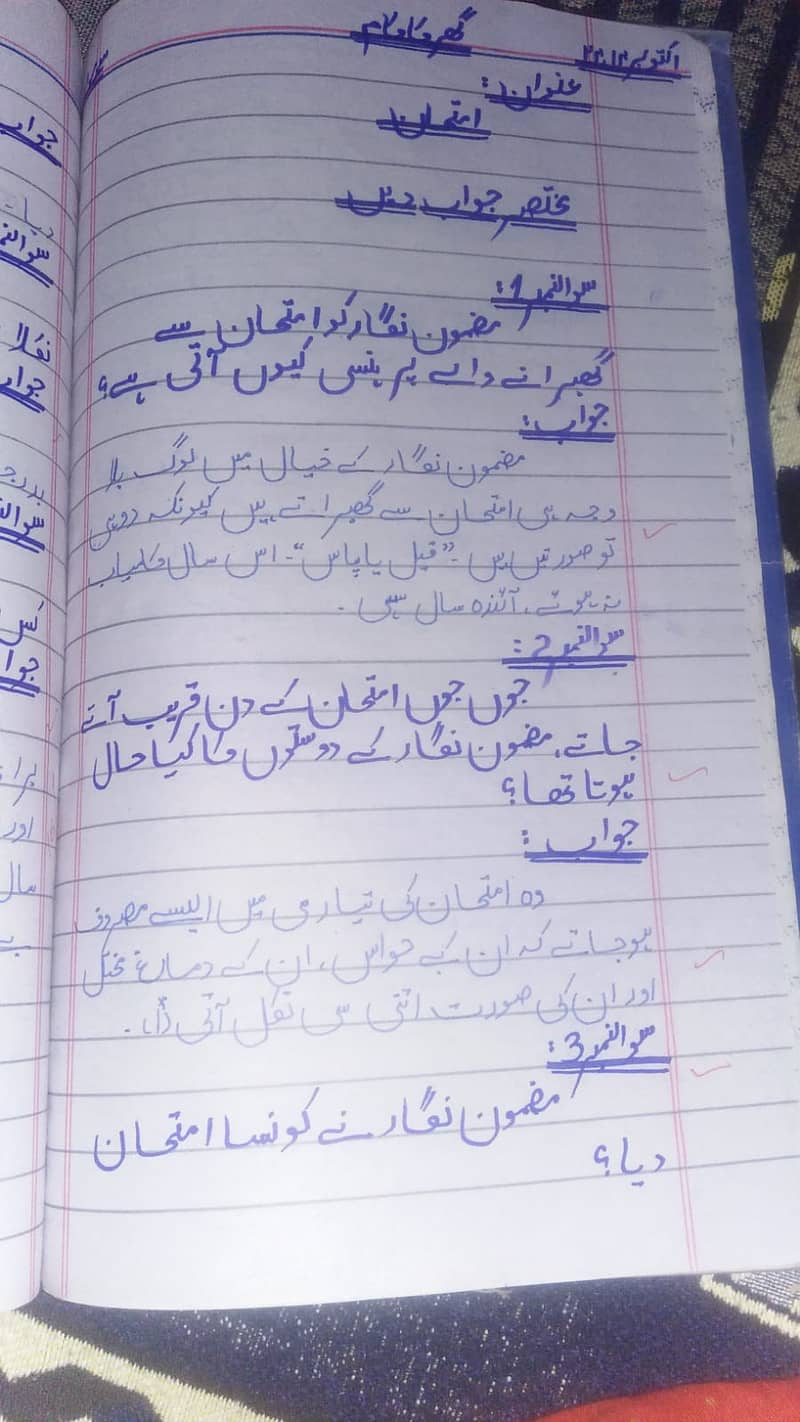 گھر کا کام
اکتوبر
عنوان:
امتحان
مختصر جواب
سوال نمبر 1:
مضمون نگار کو امتحان سے
گھبرانے والے پر ہنسی کیوں آتی ہے؟
جواب:
مضمون نگار کے خیال میں لوگ بلا
وجہ ہی امتحان سے گھبراتے ہیں کیونکہ دو ہی
تو صورتیں ہیں۔ "فیل یا پاس"۔ اس سال کامیاب
نہ ہوئے، آئندہ سال سہی۔
سوال نمبر 2:
جوں جوں امتحان کے دن قریب آتے
جاتے، مضمون نگار کے دوستوں کا کیا حال
ہوتا تھا؟
جواب:
وہ امتحان کی تیاری میں ایسے مصروف
ہوجاتے کہ ان کے حواس، ان کے دماغ مختل
اور ان کی صورت اتنی سی نکل آتی
سوال نمبر 3:
مضمون نگار نے کونسا امتحان
دیا؟
جواب
سوال
جواب
سوال
جواب
اور
سال